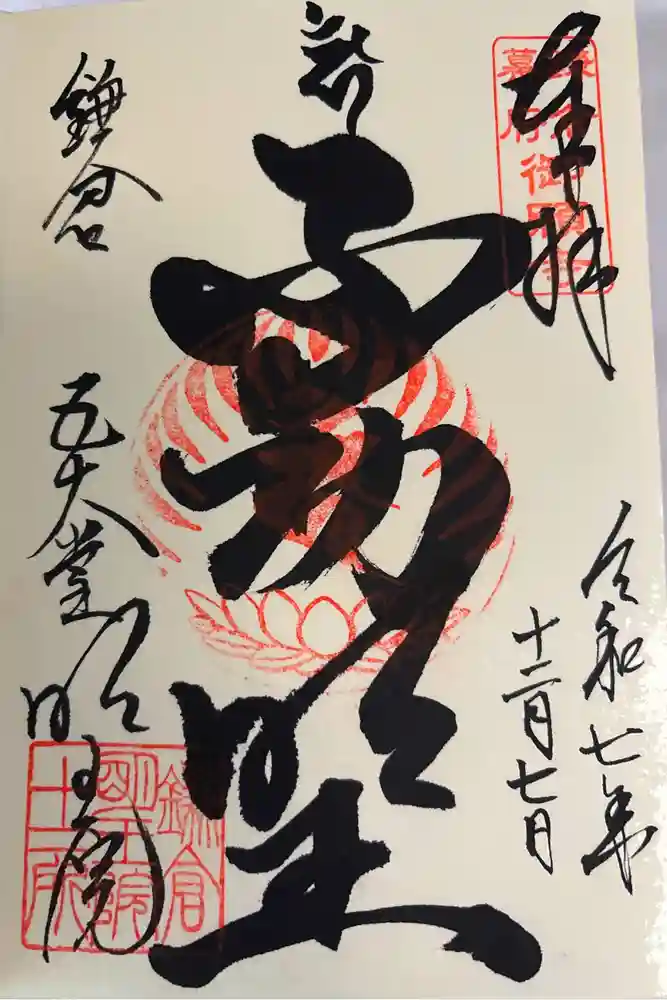 奉拝
鎌倉
幕府
御願
令和七年
十二月七日
不動明王
鎌倉
五大堂明王院
鎌倉
明王院